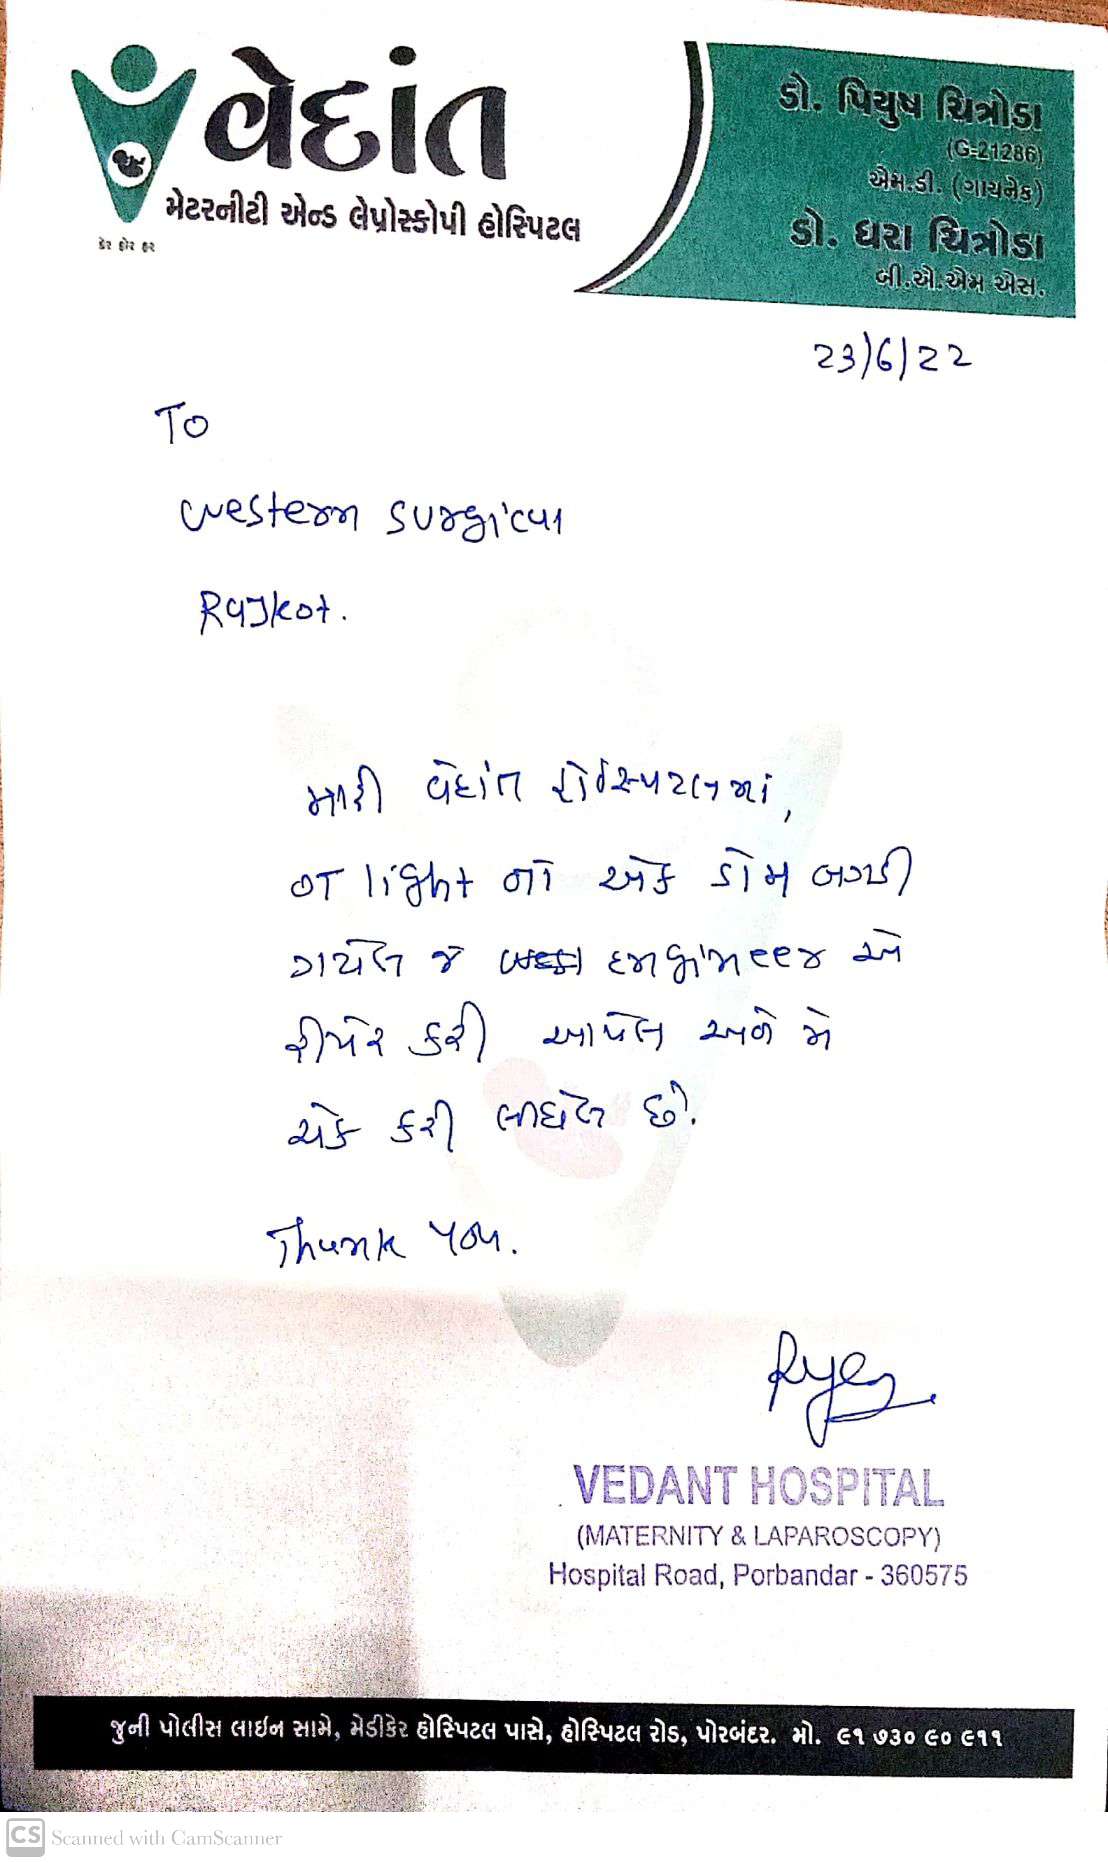 વેદાંત
મેટરનીટી એન્ડ લેપ્રોસ્કોપી હોસ્પિટલ
કેર ફોર હર
ડો. પિયુષ ચિત્રોડા
(G-21286)
એમ.ડી. (ગાયનેક)
ડો. ધરા ચિત્રોડા
બી.એ.એમ એસ.
23/6/22
To
Western Surgical
Rajkot.
મારી વેદાંત હોસ્પિટલમાં,
OT light નો એક ડોમ બગડી
ગયેલ જે engineer એ
રીપેર કરી આપેલ અને મે
ચેક કરી લીધેલ છે.
Thank You.
VEDANT HOSPITAL
(MATERNITY & LAPAROSCOPY)
Hospital Road, Porbandar - 360575
જુની પોલીસ લાઇન સામે, મેડીકેર હોસ્પિટલ પાસે, હોસ્પિટલ રોડ, પોરબંદર. મો. ૯૧ ૭૩૦ ૯૦ ૯૧૧
CS Scanned with CamScanner